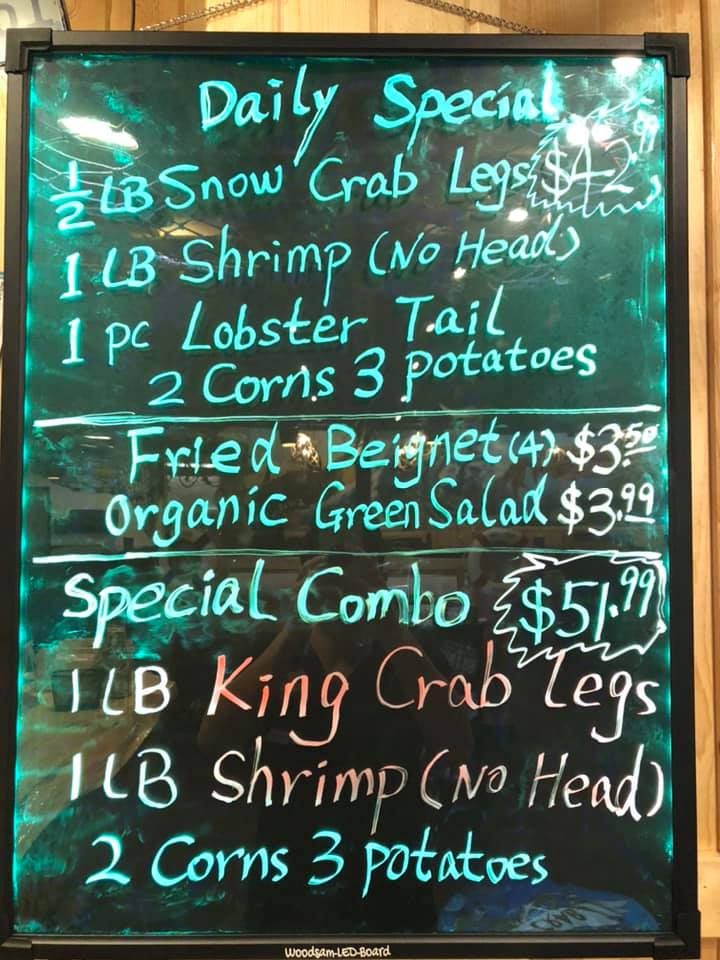 Daily Special
1/2 LB Snow Crab Legs $42.99
1 LB Shrimp (No Head)
1 pc Lobster Tail
2 Corns 3 potatoes
Fried Beignet (4) $3.50
Organic Green Salad $3.99
Special Combo $51.99
1 LB King Crab Legs
1 LB Shrimp (No Head)
2 Corns 3 potatoes
Woodsam-LED-Board